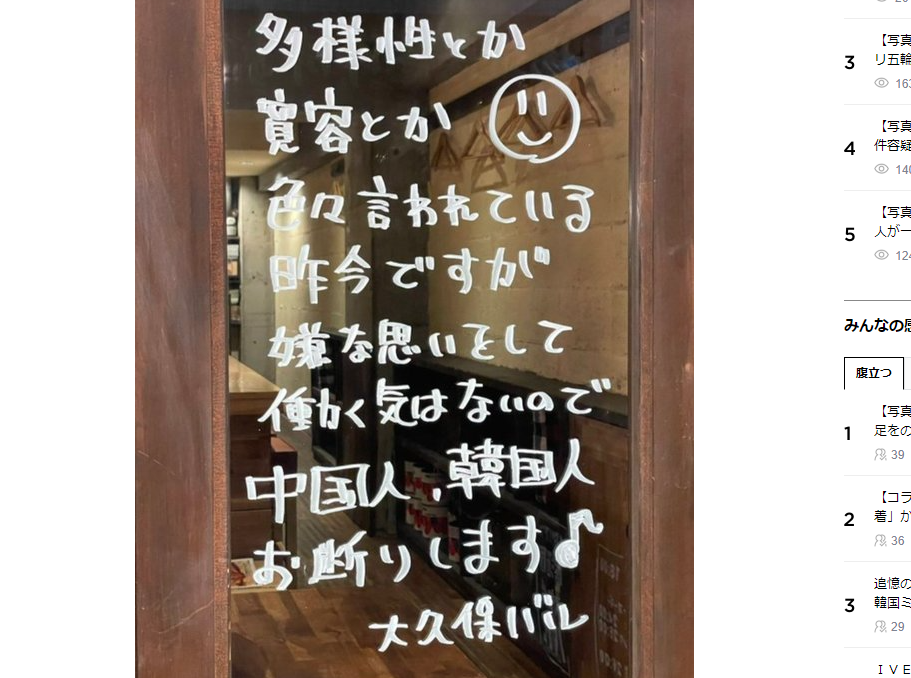 多様性とか
寛容とか
色々言われている
昨今ですが
嫌な思いをして
働く気はないので
中国人、韓国人
お断りします♪
大久保バル
3
【写真
リ五輪
163
4
【写真
件容疑
140
5
【写真
人が一
124
みんなの感
腹立つ
1
【写真
足をの
39
2
【コラ
着」か
36
3
追憶の
韓国ミ
29
ＩＶＥ